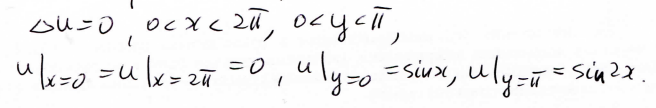 Δu=0, 0<x<2π, 0<y<π,
u|x=0 = u|x=2π = 0, u|y=0 = sinx, u|y=π = sin2x.